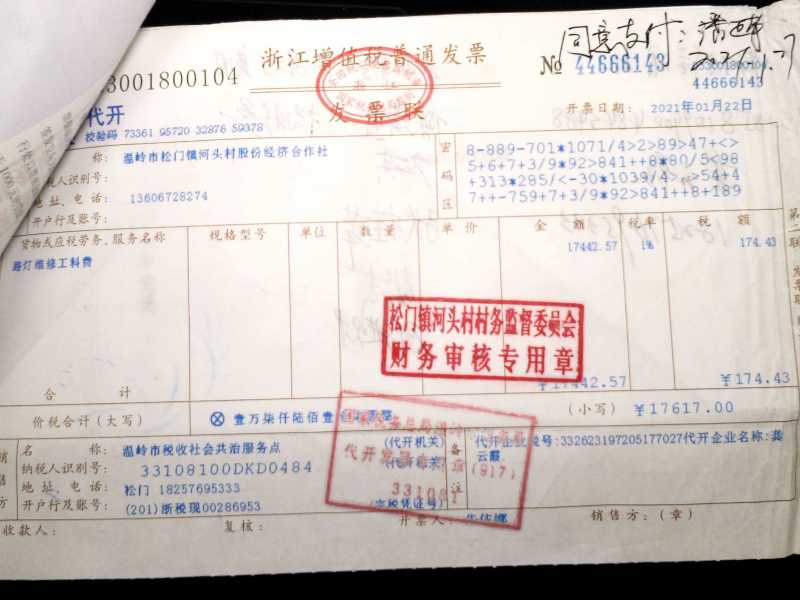 同意支付：
浙江增值税普通发票
发票联
3001800104
№ 44666143
3300180104
44666143
代开
校验码 73361 95720 32876 59378
开票日期： 2021年01月22日
称： 温岭市松门镇河头村股份经济合作社
税人识别号：
地址、电话： 13606728274
开户行及账号：
密码区
8-889-701*1071/4>2>89>47+<>
5+6+7+3/9*92>841++8*80/5<98
+313*285/<-30*1039/4>
>54+4
7++-759+7+3/9*92>841++8+189
货物或应税劳务、服务名称 规格型号 单位 数量 单价 金额 税率 税额
路灯维修工料费 17442.57 1% 174.43
松门镇河头村村务监督委员会
财务审核专用章
合计 ￥17442.57 ￥174.43
价税合计（大写） ⊗ 壹万柒仟陆佰壹 （小写） ￥17617.00
名称： 温岭市税收社会共治服务点 (代开机关)
纳税人识别号： 33108100DKD0484
地址、电话： 松门 18257695333
开户行及账号： (201)浙税现00286953 (完税凭证号)
备注
代开企业税号:332623197205177027代开企业名称:龚
云
收款人： 复核： 开票人： 销售方：（章）